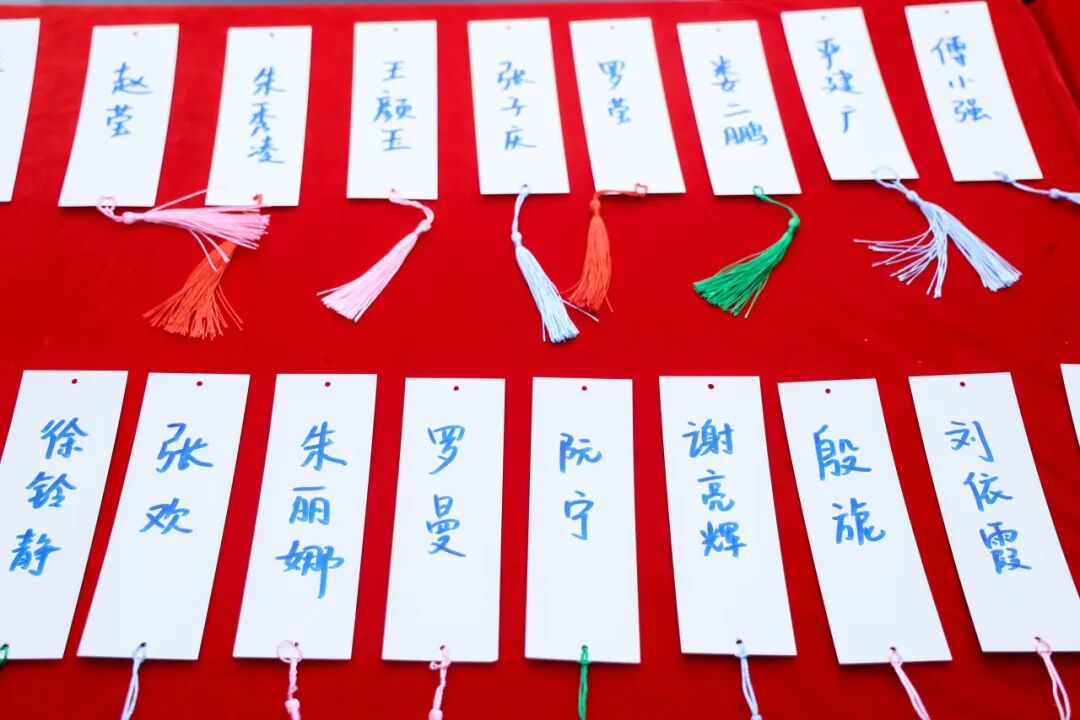 赵莹
朱秀凌
王颜玉
张子庆
罗莹
娄二鹏
严建广
傅小强
徐铨静
张欢
朱丽娜
罗曼
阮宁
谢亮辉
殷旎
刘依霞